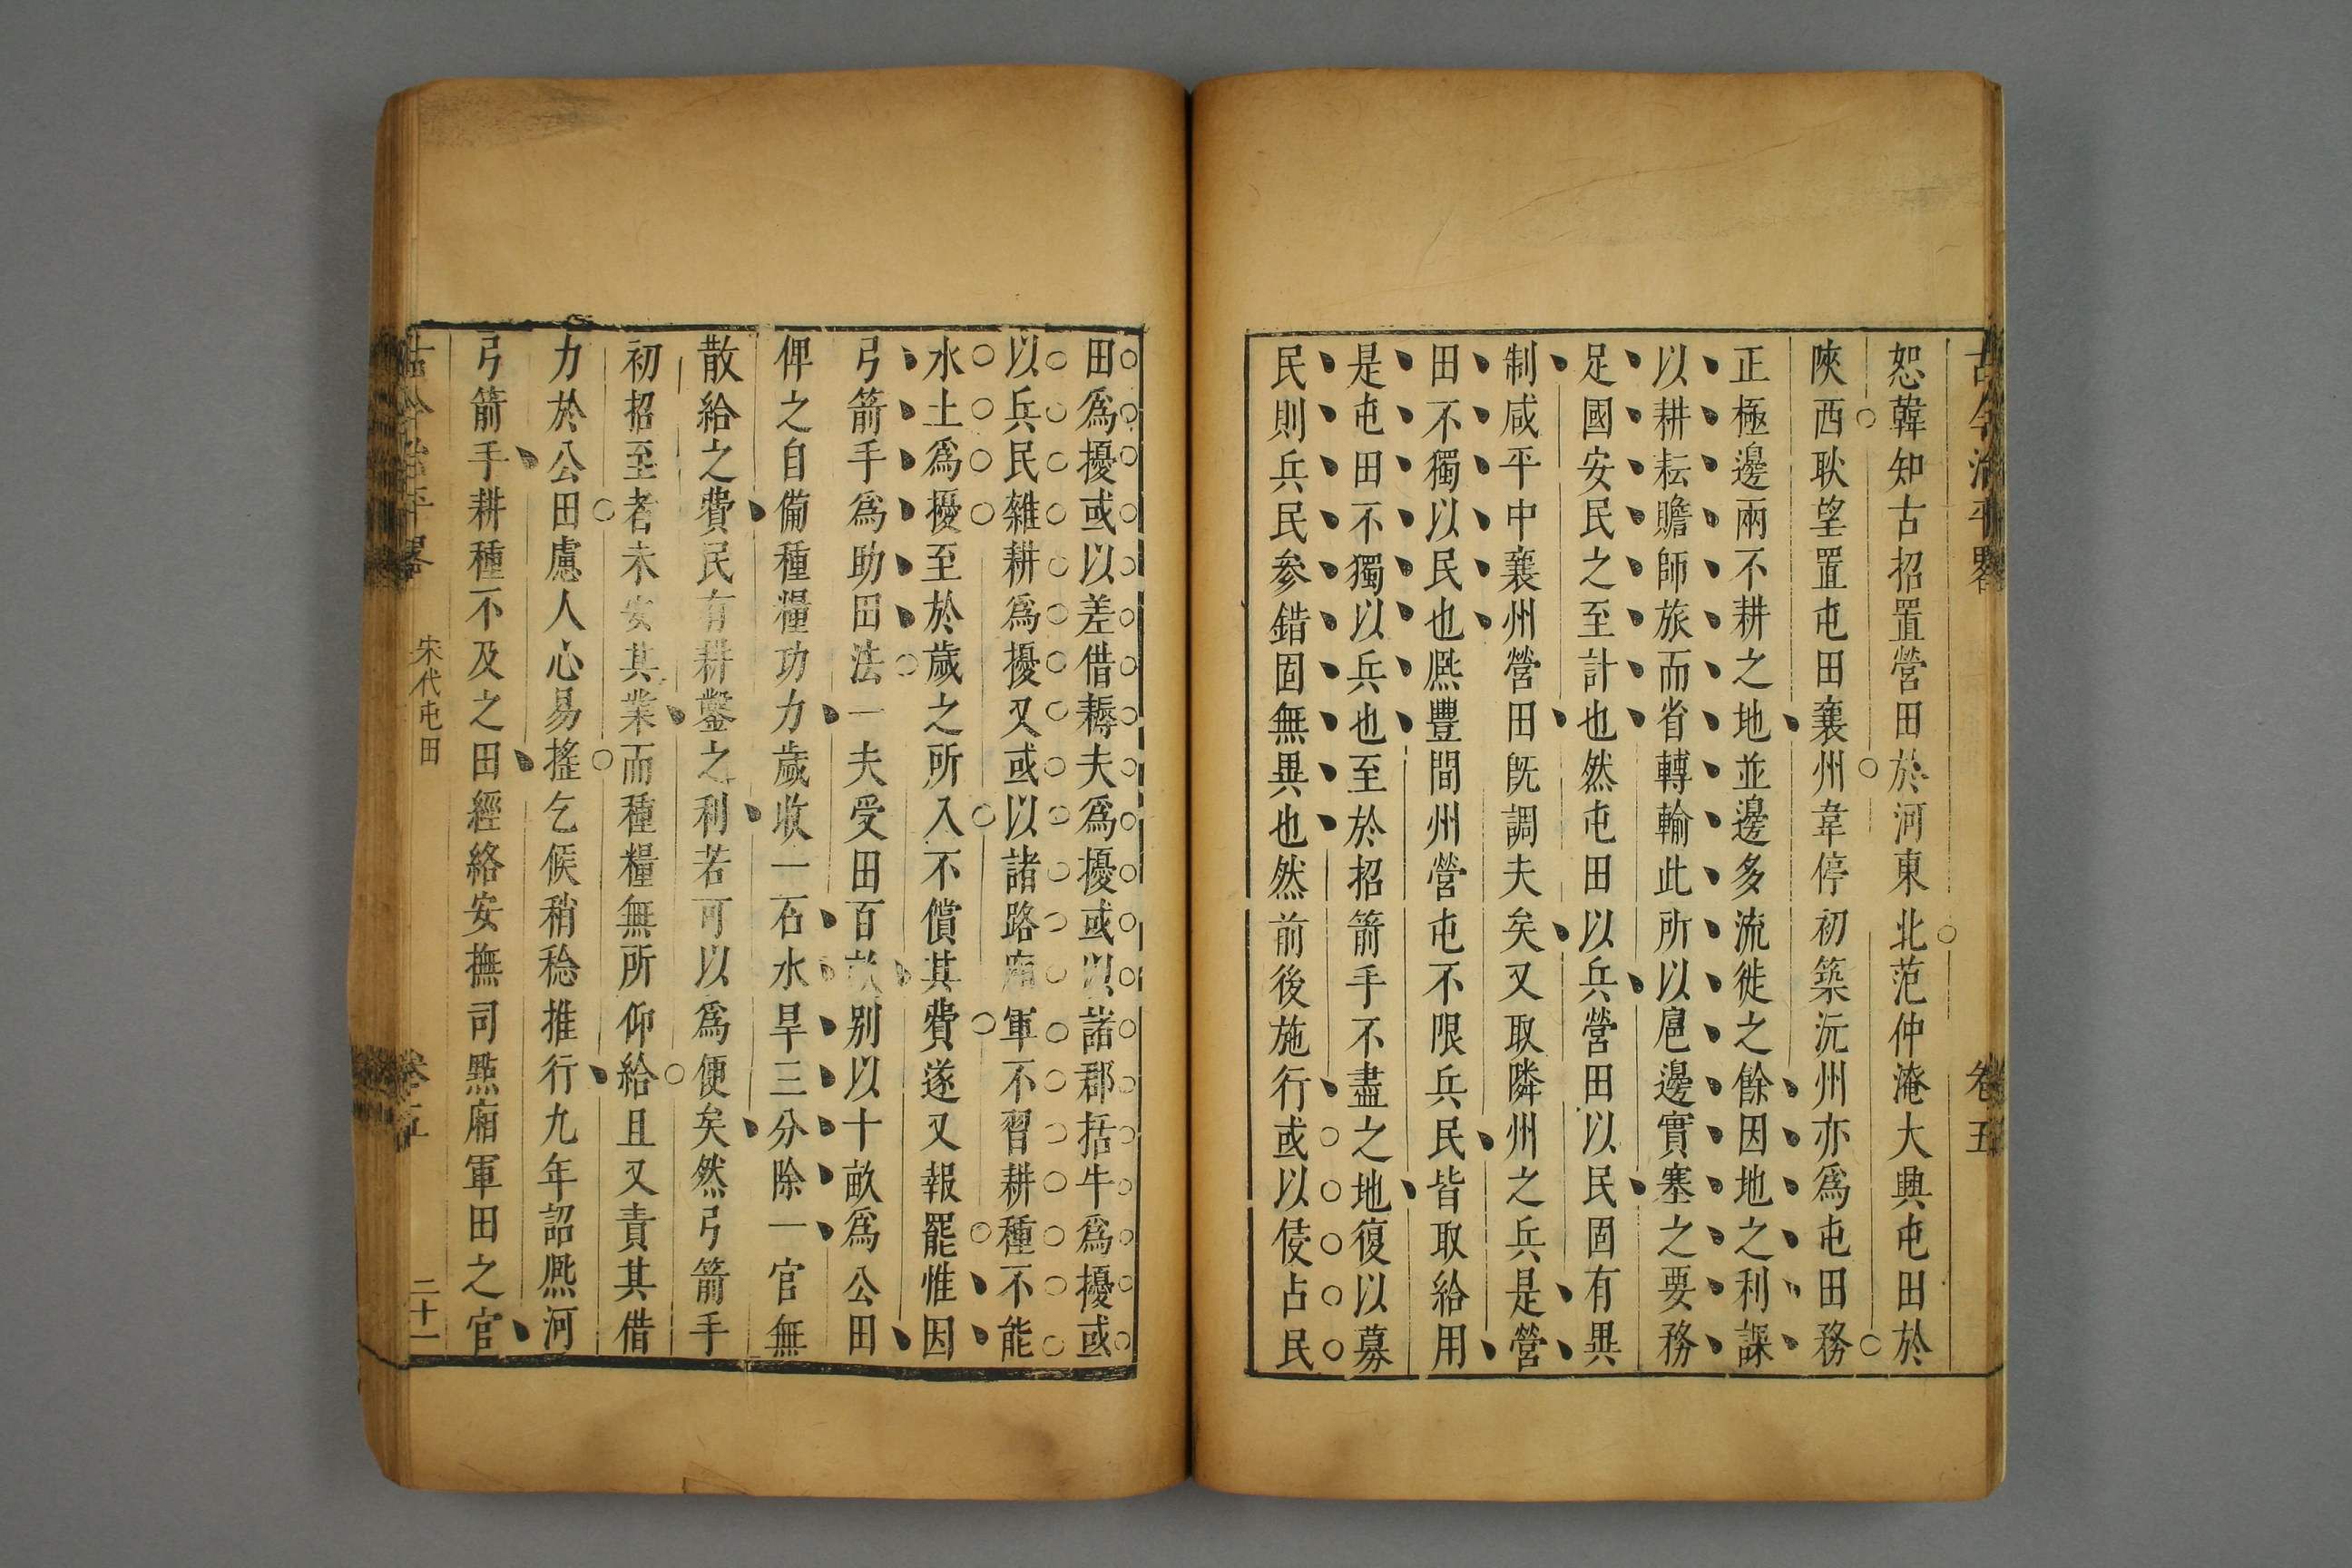 古今治平畧 卷五
恕韓知古招置營田於河東北范仲淹大興屯田於
陝西耿望置屯田襄州韋停初築沅州亦爲屯田務
正極邊兩不耕之地並邊多流徙之餘因地之利課
以耕耘贍師旅而省轉輸此所以扈邊實塞之要務
足國安民之至計也然屯田以兵營田以民固有異
制咸平中襄州營田旣調夫矣又取隣州之兵是營
田不獨以民也熈豐間州營屯不限兵民皆取給用
是屯田不獨以兵也至於招箭手不盡之地復以募
民則兵民參錯固無異也然前後施行或以侵占民
田爲擾或以差借耨夫爲擾或以諸郡括牛爲擾或
以兵民雜耕爲擾又或以諸路廂軍不習耕種不能
水土爲擾至於歲之所入不償其費遂又報罷惟因
弓箭手爲助田法一夫受田百畝別以十畝爲公田
俾之自備種糧功力歲收一石水旱三分除一官無
散給之費民有耕鑿之利若可以爲便矣然弓箭手
初招至者未安其業而種糧無所仰給且又責其借
力於公田慮人心易搖乞候稍稔推行九年詔熈河
弓箭手耕種不及之田經絡安撫司點廂軍田之官
古今治平畧 宋代屯田 卷五 二十一